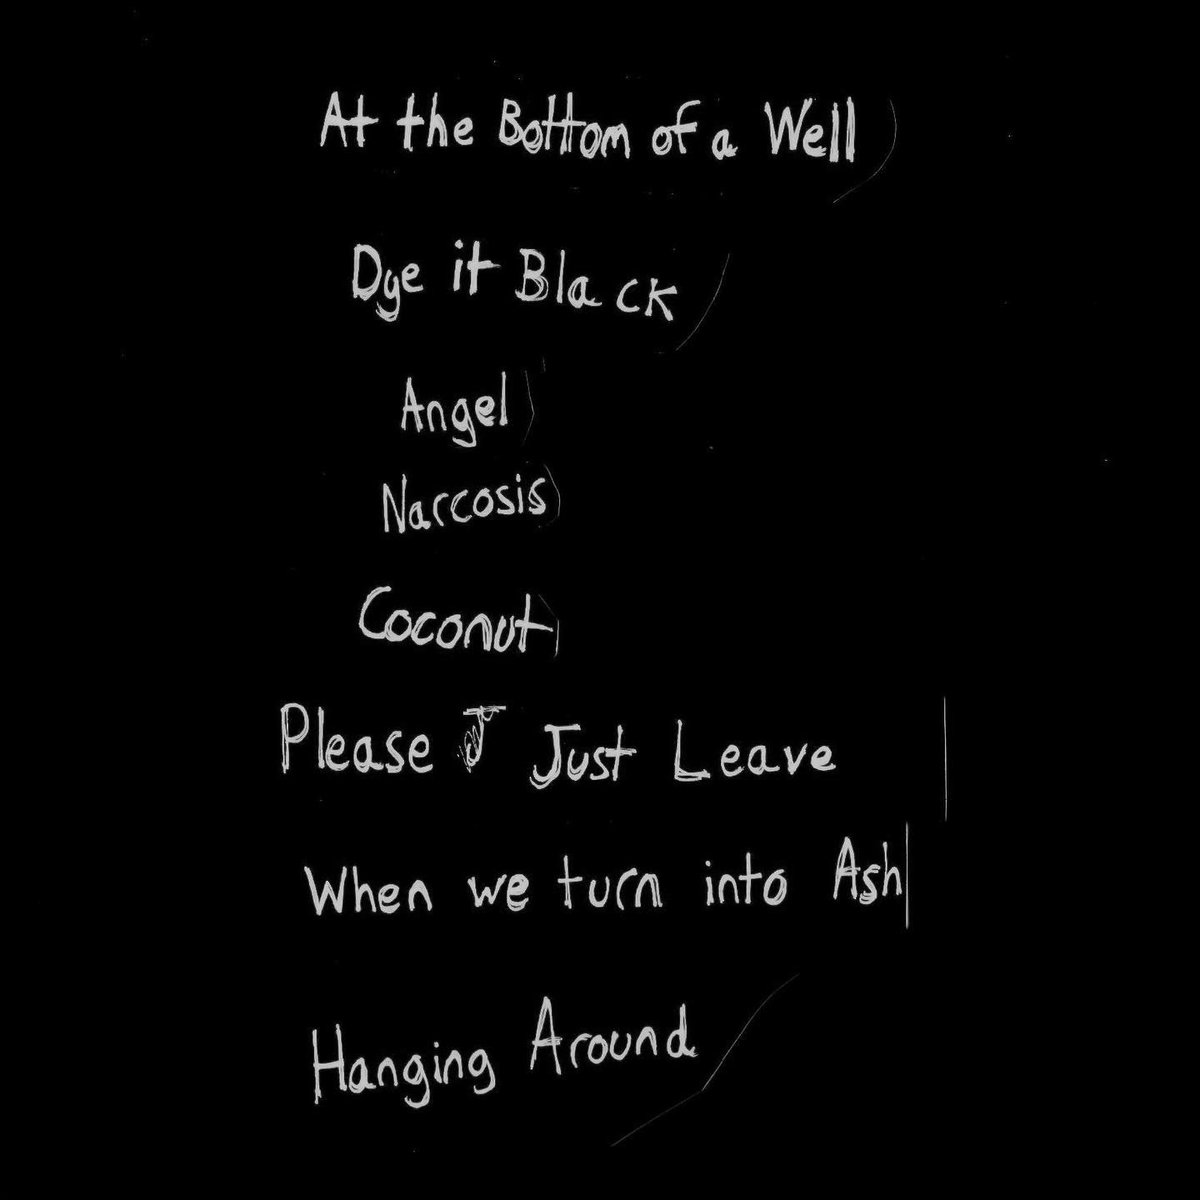 At the Bottom of a Well
Dye it Black
Angel
Narcosis
Coconut
Please J Just Leave
When we turn into Ash
Hanging Around